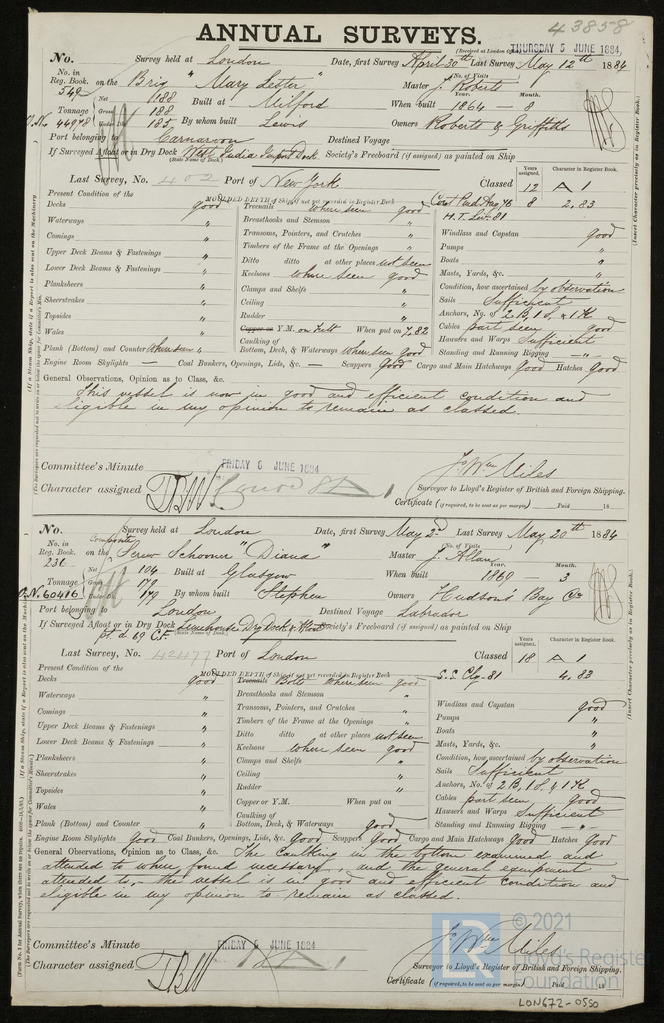 43858
ANNUAL SURVEYS.
(Received at London Office THURSDAY 5 JUNE 1884)
No. Survey held at London Date, first Survey April 30th Last Survey May 12th 1884
No. in Reg. Book. 549 on the Brig "Mary Lester" Master J. Roberts
(No. of Visits)
Tonnage Net 188 Gross 188 Under Dk 185 Built at Milford When built Year. 1864 Month. 8
O.N. 44978 By whom built Lewis Owners Roberts & Griffiths
Port belonging to Carnarvon Destined Voyage
If Surveyed Afloat or in Dry Dock West India Import Dock Society's Freeboard (if assigned) as painted on Ship
(State Name of Dock.)
Last Survey, No. 402 Port of New York Classed Years assigned. 12 Character in Register Book. A 1
Present Condition of the MOULDED DEPTH of Ship if not yet recorded in Register Book Cont Red Aug 76 8 2,83
Decks good Treenails where seen good H.T. Liv. 81
Waterways " Breasthooks and Stemson " Windlass and Capstan good
Comings " Transoms, Pointers, and Crutches " Pumps "
Upper Deck Beams & Fastenings " Timbers of the Frame at the Openings " Boats "
Lower Deck Beams & Fastenings " Ditto ditto at other places not seen Masts, Yards, &c. "
Planksheers " Keelsons where seen good Condition, how ascertained by observation
Sheerstrakes " Clamps and Shelfs " Sails Sufficient
Topsides " Ceiling " Anchors, No. of 2 B, 1 S, & 1 K
Wales " Rudder " Cables part seen good
Plank (Bottom) and Counter where seen " Copper or Y.M. on Felt When put on 7,82 Hawsers and Warps Sufficient
Caulking of Bottom, Deck, & Waterways where seen good Standing and Running Rigging "
Engine Room Skylights — Coal Bunkers, Openings, Lids, &c. — Scuppers Good Cargo and Main Hatchways Good Hatches Good
General Observations, Opinion as to Class, &c.
This vessel is now in good and efficient condition and
eligible in my opinion to remain as classed
Committee's Minute FRIDAY 6 JUNE 1884
Character assigned A 1
Jno Wm Miles
Surveyor to Lloyd's Register of British and Foreign Shipping.
Certificate (if required, to be sent as per margin) Paid 18
No. Survey held at London Date, first Survey May 2nd Last Survey May 20th 1884
No. in Reg. Book. 236 on the Composite Screw Schooner "Diana" Master J. Allan
(No. of Visits)
Tonnage Net 104 Gross 179 Under Dk 179 Built at Glasgow When built Year. 1869 Month. 3
O.N. 60416 By whom built Stephen Owners Hudson's Bay Co.
Port belonging to London Destined Voyage Labrador
If Surveyed Afloat or in Dry Dock Limehouse Dry Dock & Afloat Society's Freeboard (if assigned) as painted on Ship
pt. d 69 C.F. (State Name of Dock.)
Last Survey, No. 42477 Port of London Classed Years assigned. 18 Character in Register Book. A 1
Present Condition of the MOULDED DEPTH of Ship if not yet recorded in Register Book S.S. Clg. 81 4,83
Decks good Treenails Bolts where seen good
Waterways " Breasthooks and Stemson " Windlass and Capstan good
Comings " Transoms, Pointers, and Crutches " Pumps "
Upper Deck Beams & Fastenings " Timbers of the Frame at the Openings " Boats "
Lower Deck Beams & Fastenings " Ditto ditto at other places not seen Masts, Yards, &c. "
Planksheers " Keelsons where seen good Condition, how ascertained by observation
Sheerstrakes " Clamps and Shelfs " Sails Sufficient
Topsides " Ceiling " Anchors, No. of 2 B, 1 S, & 1 K
Wales " Rudder " Cables part seen good
Plank (Bottom) and Counter " Copper or Y.M. When put on Hawsers and Warps Sufficient
Caulking of Bottom, Deck, & Waterways good Standing and Running Rigging "
Engine Room Skylights Good Coal Bunkers, Openings, Lids, &c. Good Scuppers Good Cargo and Main Hatchways Good Hatches Good
General Observations, Opinion as to Class, &c. The Caulking in the bottom examined and
attended to where found necessary, and the general equipment
attended to, - the vessel is in good and efficient condition and
eligible in my opinion to remain as classed.
Committee's Minute FRIDAY 6 JUNE 1884
Character assigned A 1
Jno Wm Miles
Surveyor to Lloyd's Register of British and Foreign Shipping.
Certificate (if required, to be sent as per margin) Paid 18
© 2021
Lloyd's Register
Foundation
LON672-0550
(Insert Character precisely as in Register Book.)
(Insert Character precisely as in Register Book.)